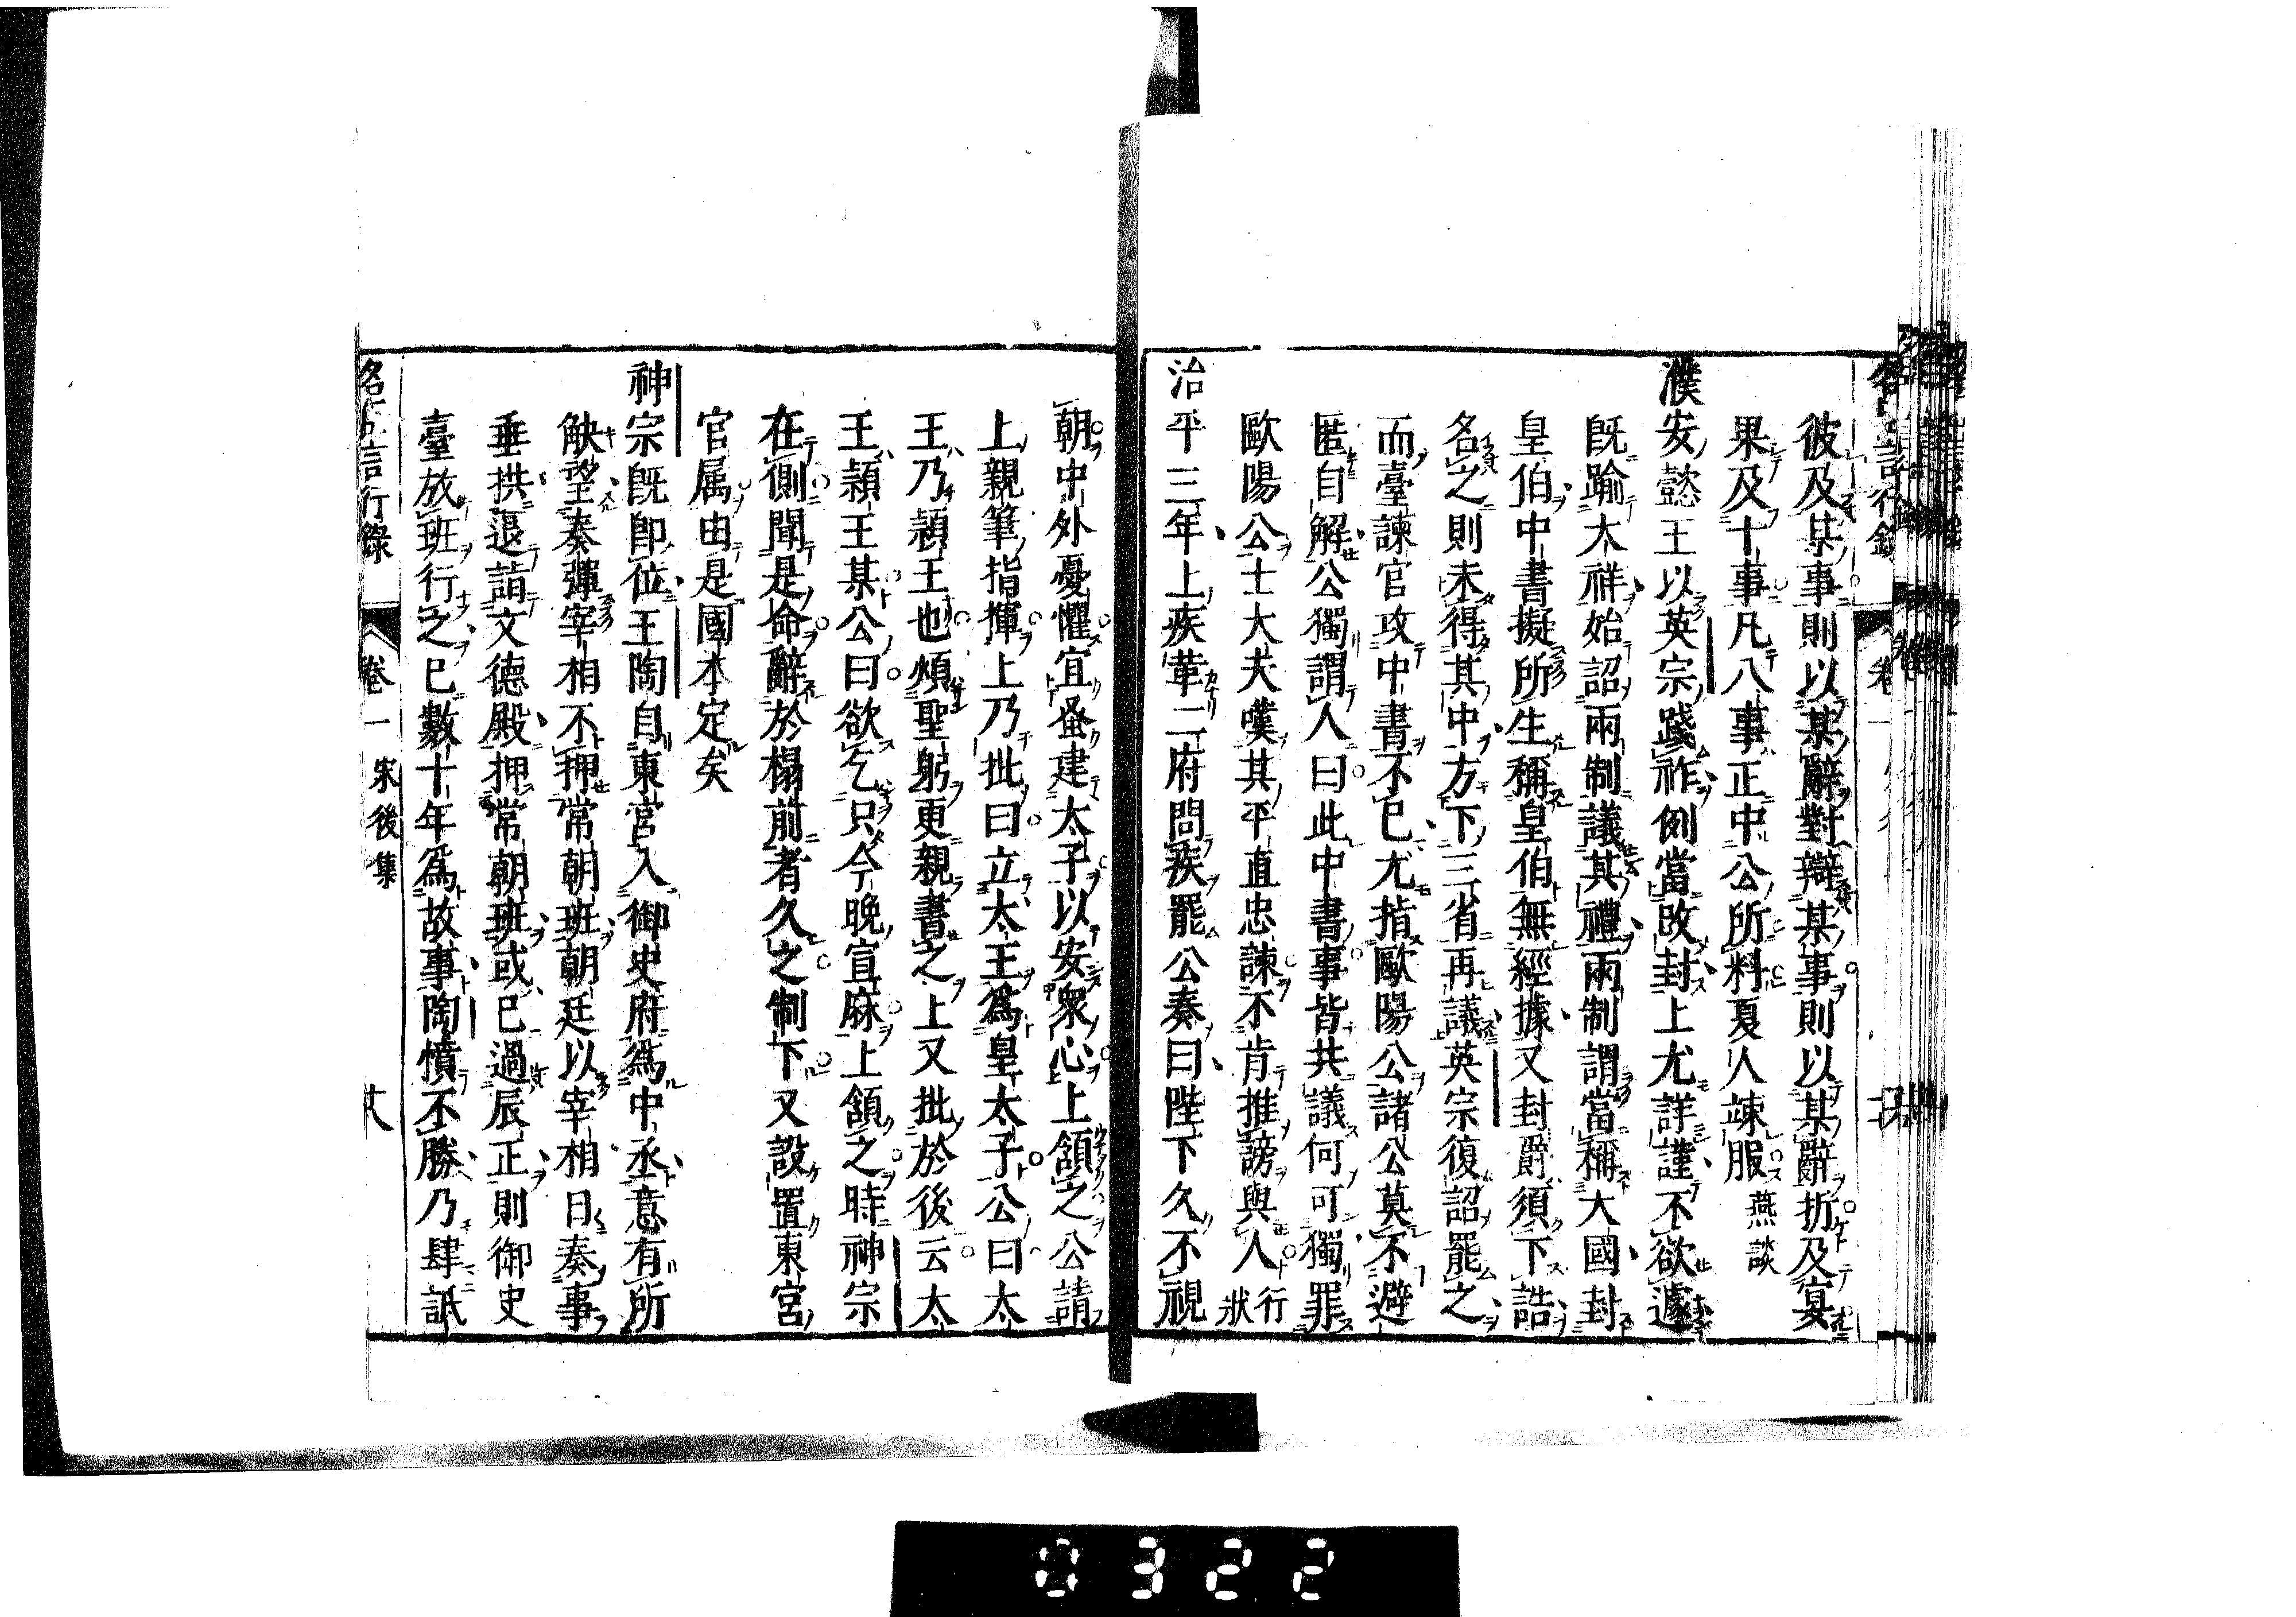 彼及某事則以某辭對辯某事則以某辭折及宴
果及十事凡八事正中公所料夏人竦服 燕談
濮安懿王以英宗踐祚例當改封上尤詳謹不欲遽
既踰大祥始詔兩制議其禮兩制謂當稱大國封
皇伯中書擬所生稱皇伯無經據又封爵須下誥
名之則未得其中方下三省再議英宗復詔罷之
而臺諫官攻中書不已尤指歐陽公諸公莫不避
匿自解公獨謂人曰此中書事皆共議何可獨罪
歐陽公士大夫嘆其平直忠諫不肯推謗與人 行狀
治平三年上疾革二府問疾罷公奏曰陛下久不視
朝中外憂懼宜蚤建太子以安衆心上頷之公請
上親筆指揮上乃批曰立大王爲皇太子公曰大
王乃頴王也煩聖躬更親書之上又批於後云大
王頴王某公曰欲乞只今晚宣麻上頷之時神宗
在側聞是命辭於榻前者久之制下又設置東宮
官属由是國本定矣
神宗既即位王陶自東宮入御史府爲中丞意有所
觖望奏彈宰相不押常朝班朝廷以宰相日奏事
垂拱退詣文德殿押常朝班或已過辰正則御史
臺放班行之已數十年爲故事陶憤不勝乃肆詆
名臣言行錄 卷一 宋後集 廿八
0322